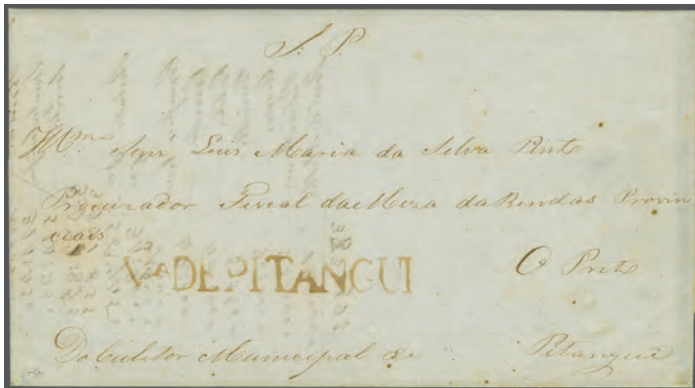 S. P.
Illm.º Snr. Luis Maria da Silva Pinto
Procurador Fiscal da Meza da Rendas Provin
ciais
O Preto
Vª DE PITANGUI
Do Colletor Municipal de Pitangui